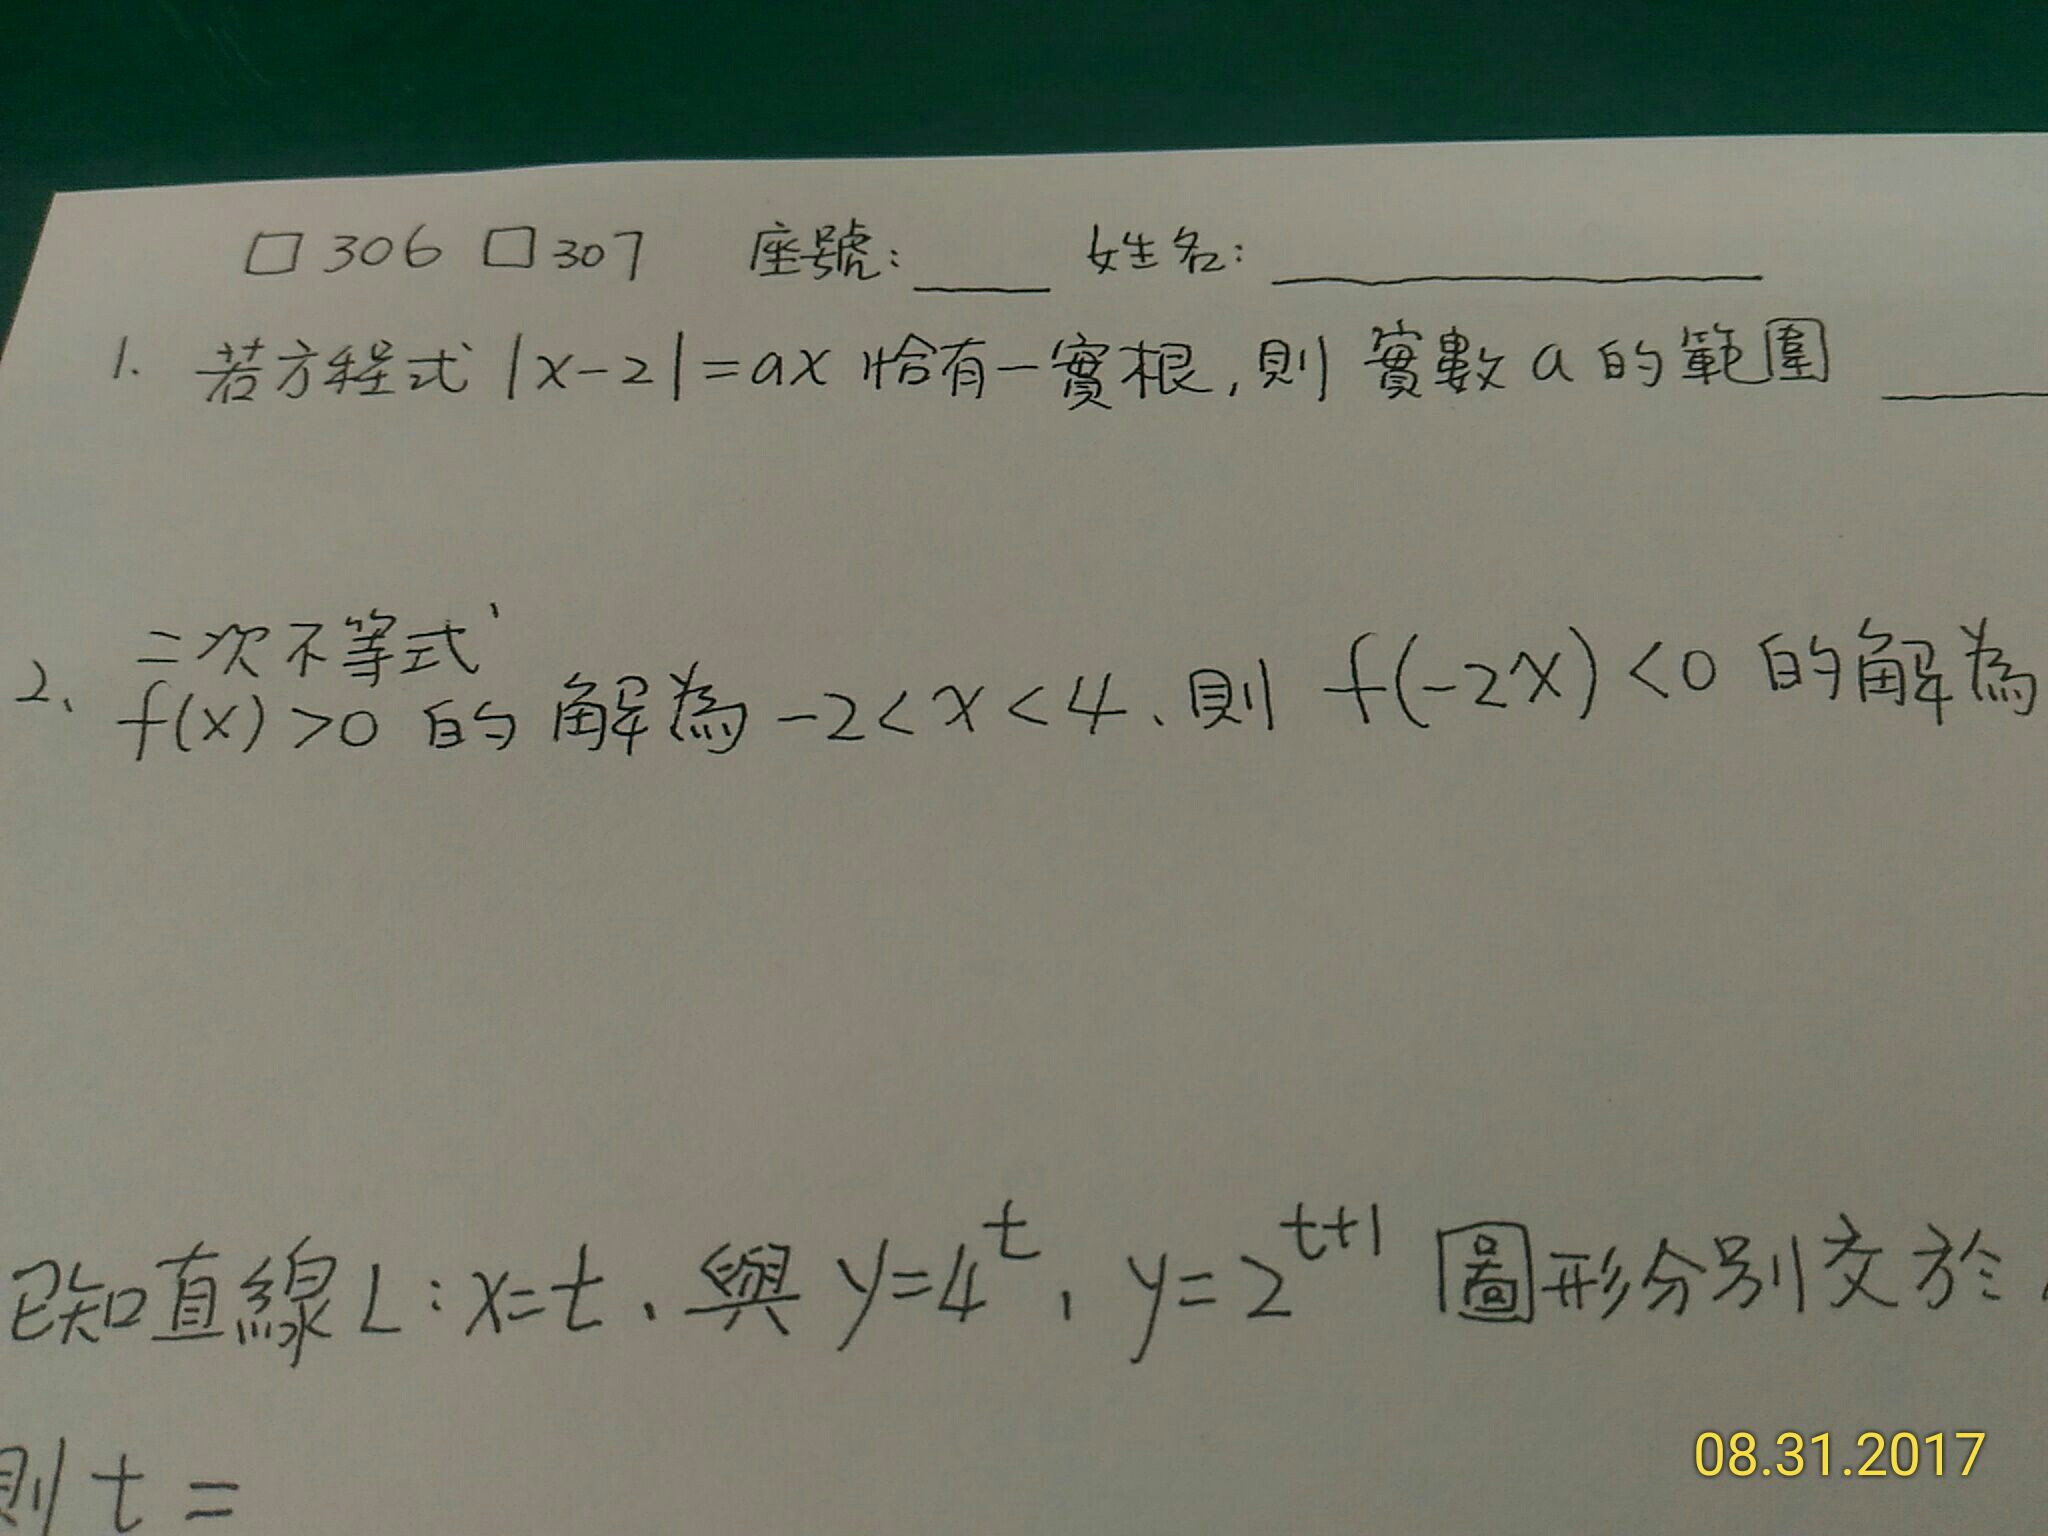 □306 □307 座號:___ 姓名:_______
1. 若方程式 |x-2|=ax 恰有一實根,則 實數 a 的範圍 ___
2、二次不等式
f(x)>0 的 解為 -2<x<4、則 f(-2x)<0 的解為
已知直線 L:x=t、與 y=4^t, y=2^{t+1} 圖形分別交於
則 t =
08.31.2017